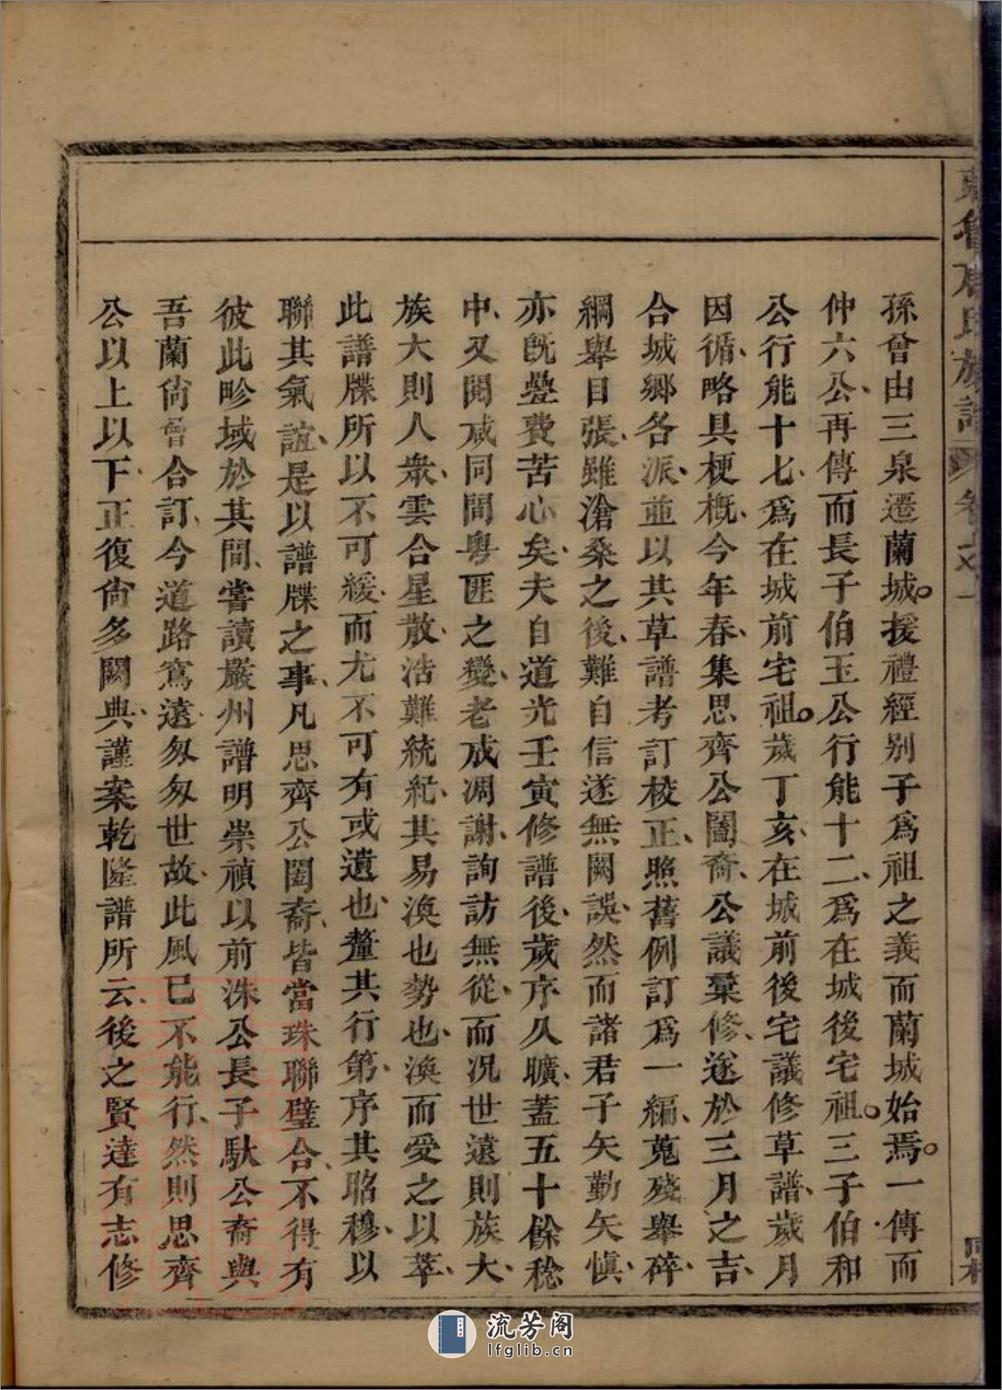 孫曾由三泉遷蘭城。援禮經別子爲祖之義而蘭城始焉。一傳而
仲六公、再傳而長子伯玉公行能十二、爲在城後宅祖。三子伯和
公行能十七、爲在城前宅祖。歲丁亥、在城前後宅議修草譜、歲月
因循、略具梗概、今年春、集思齊公闔裔、公議彙修、遂於三月之吉、
合城鄉各派、並以其草譜考訂校正、照舊例訂爲一編、蒐殘舉碎、
綱舉目張、雖滄桑之後、難自信遂無闕誤、然而諸君子矢勤矢慎、
亦既疊費苦心矣、夫自道光壬寅修譜後、歲序久曠、蓋五十餘稔
中、又閱咸同間粵匪之變、老成凋謝、詢訪無從、而況世遠則族大、
族大則人衆、雲合星散、浩難統紀、其易渙也勢也、渙而愛之以萃、
此譜牒所以不可緩、而尤不可有或遺也、釐其行第、序其昭穆、以
聯其氣誼、是以譜牒之事、凡思齊公闔裔、皆當珠聯璧合、不得有
彼此畛域於其間、嘗讀嚴州譜明崇禎以前洙公長子馱公裔與
吾蘭尙會合訂、今道路窵遠匆匆世故、此風已不能行、然則思齊
公以上以下、正復尙多闕典、謹案乾隆譜所云、後之賢達有志修
族譜
卷之一
流芳阁
lfglib.cn